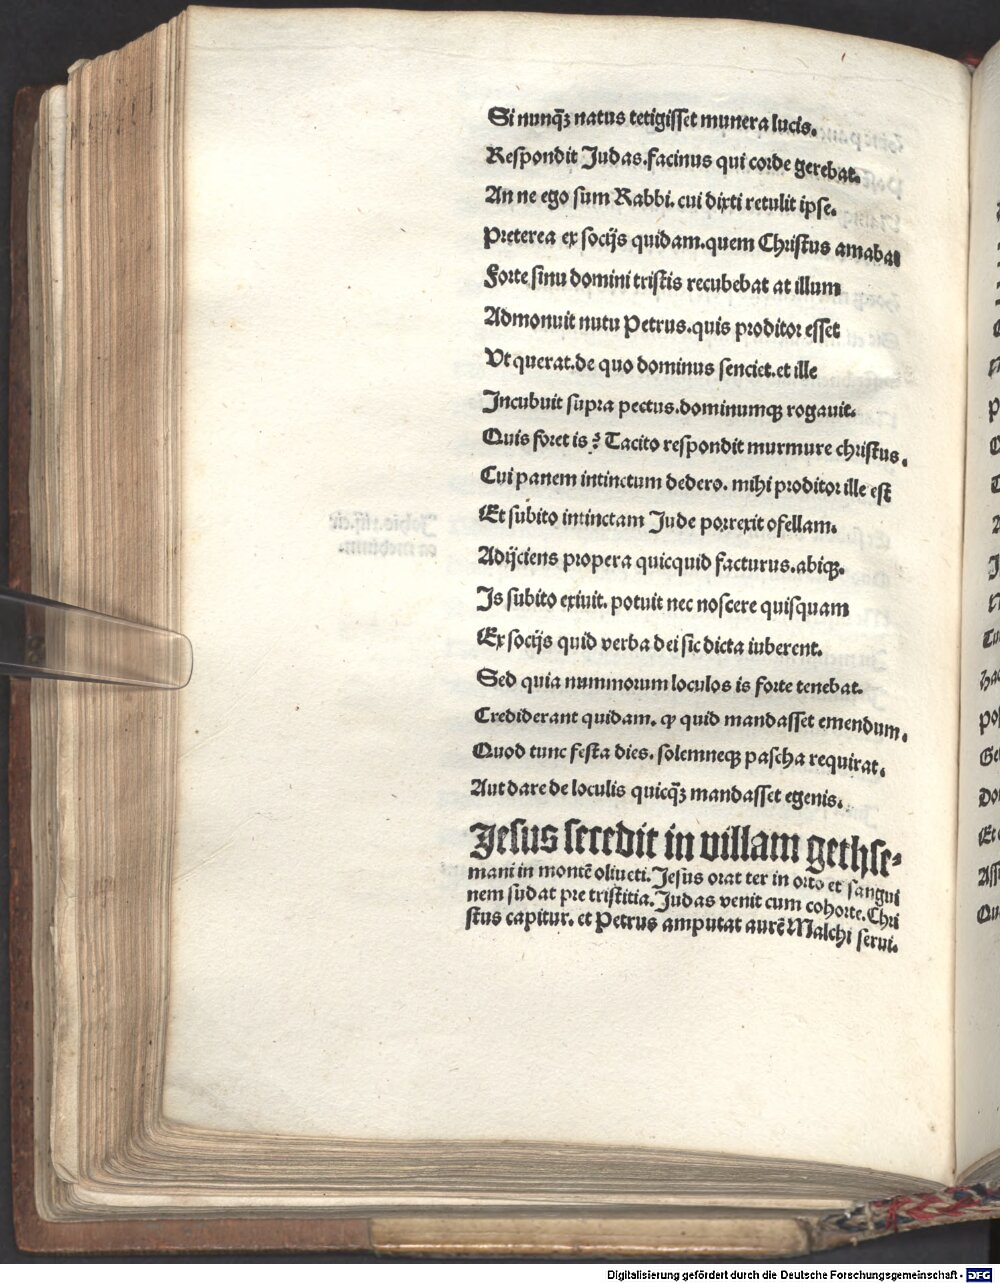 Si nunq̄ꝫ natus tetigiſſet munera lucis.
Reſpondit Judas.facinus qui corde gerebat.
An ne ego ſum Rabbi. cui dixti retulit ipſe.
Preterea ex ſocijs quidam.quem Chriſtus amabat
Forte ſinu domini triſtis recubebat at illum
Admonuit nutu Petrus.quis proditor eſſet
Vt querat.de quo dominus ſenciet.et ille
Incubuit ſupra pectus.dominumqꝫ rogauit.
Quis foret is? Tacito reſpondit murmure chriſtus.
Cui panem intinctum dedero. mihi proditor ille eſt
Et ſubito intinctam Jude porrexit ofellam.
Adijciens propera quicquid facturus.abiqꝫ.
Is ſubito exiuit. potuit nec noſcere quiſquam
Ex ſocijs quid verba dei ſic dicta iuberent.
Sed quia nummorum loculos is forte tenebat.
Crediderant quidam. ꝙ quid mandaſſet emendum.
Quod tunc feſta dies. ſolemneqꝫ paſcha requirat.
Aut dare de loculis quicq̄ꝫ mandaſſet egenis.
Jeſus ſecedit in villam gethſe-
mani in montē oliueti. Jeſus orat ter in orto et ſangui
nem ſudat pre triſtitia. Judas venit cum cohorte. Chri
ſtus capitur. et Petrus amputat aurē Malchi ſerui.
Digitalisierung gefördert durch die Deutsche Forschungsgemeinschaft - DFG